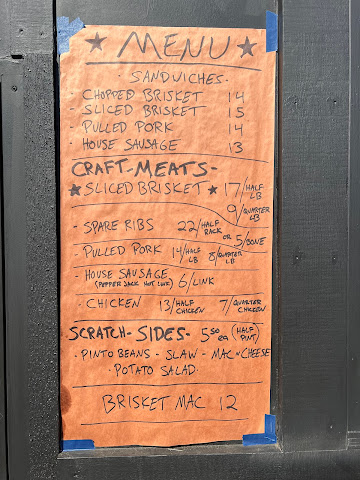 ★ MENU ★
· SANDWICHES ·
· CHOPPED BRISKET 14
· SLICED BRISKET 15
· PULLED PORK 14
· HOUSE SAUSAGE 13
CRAFT-MEATS-
★ SLICED BRISKET ★ 17/HALF LB
9/QUARTER LB
· SPARE RIBS 22/HALF RACK OR 5/BONE
· PULLED PORK 14/HALF LB 8/QUARTER LB
· HOUSE SAUSAGE 6/LINK
(PEPPER JACK HOT LINK)
· CHICKEN 13/HALF CHICKEN 7/QUARTER CHICKEN
SCRATCH-SIDES- 5.50 EA (HALF PINT)
· PINTO BEANS - SLAW - MAC N CHEESE
· POTATO SALAD ·
BRISKET MAC 12